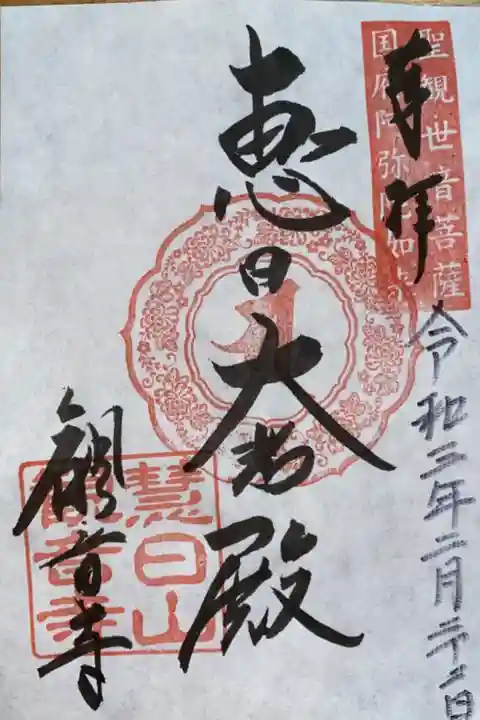 聖観世音菩薩
国府阿弥陀如来
奉拝
令和二年二月 日
恵日大 殿
観音寺
慧日山
観音寺